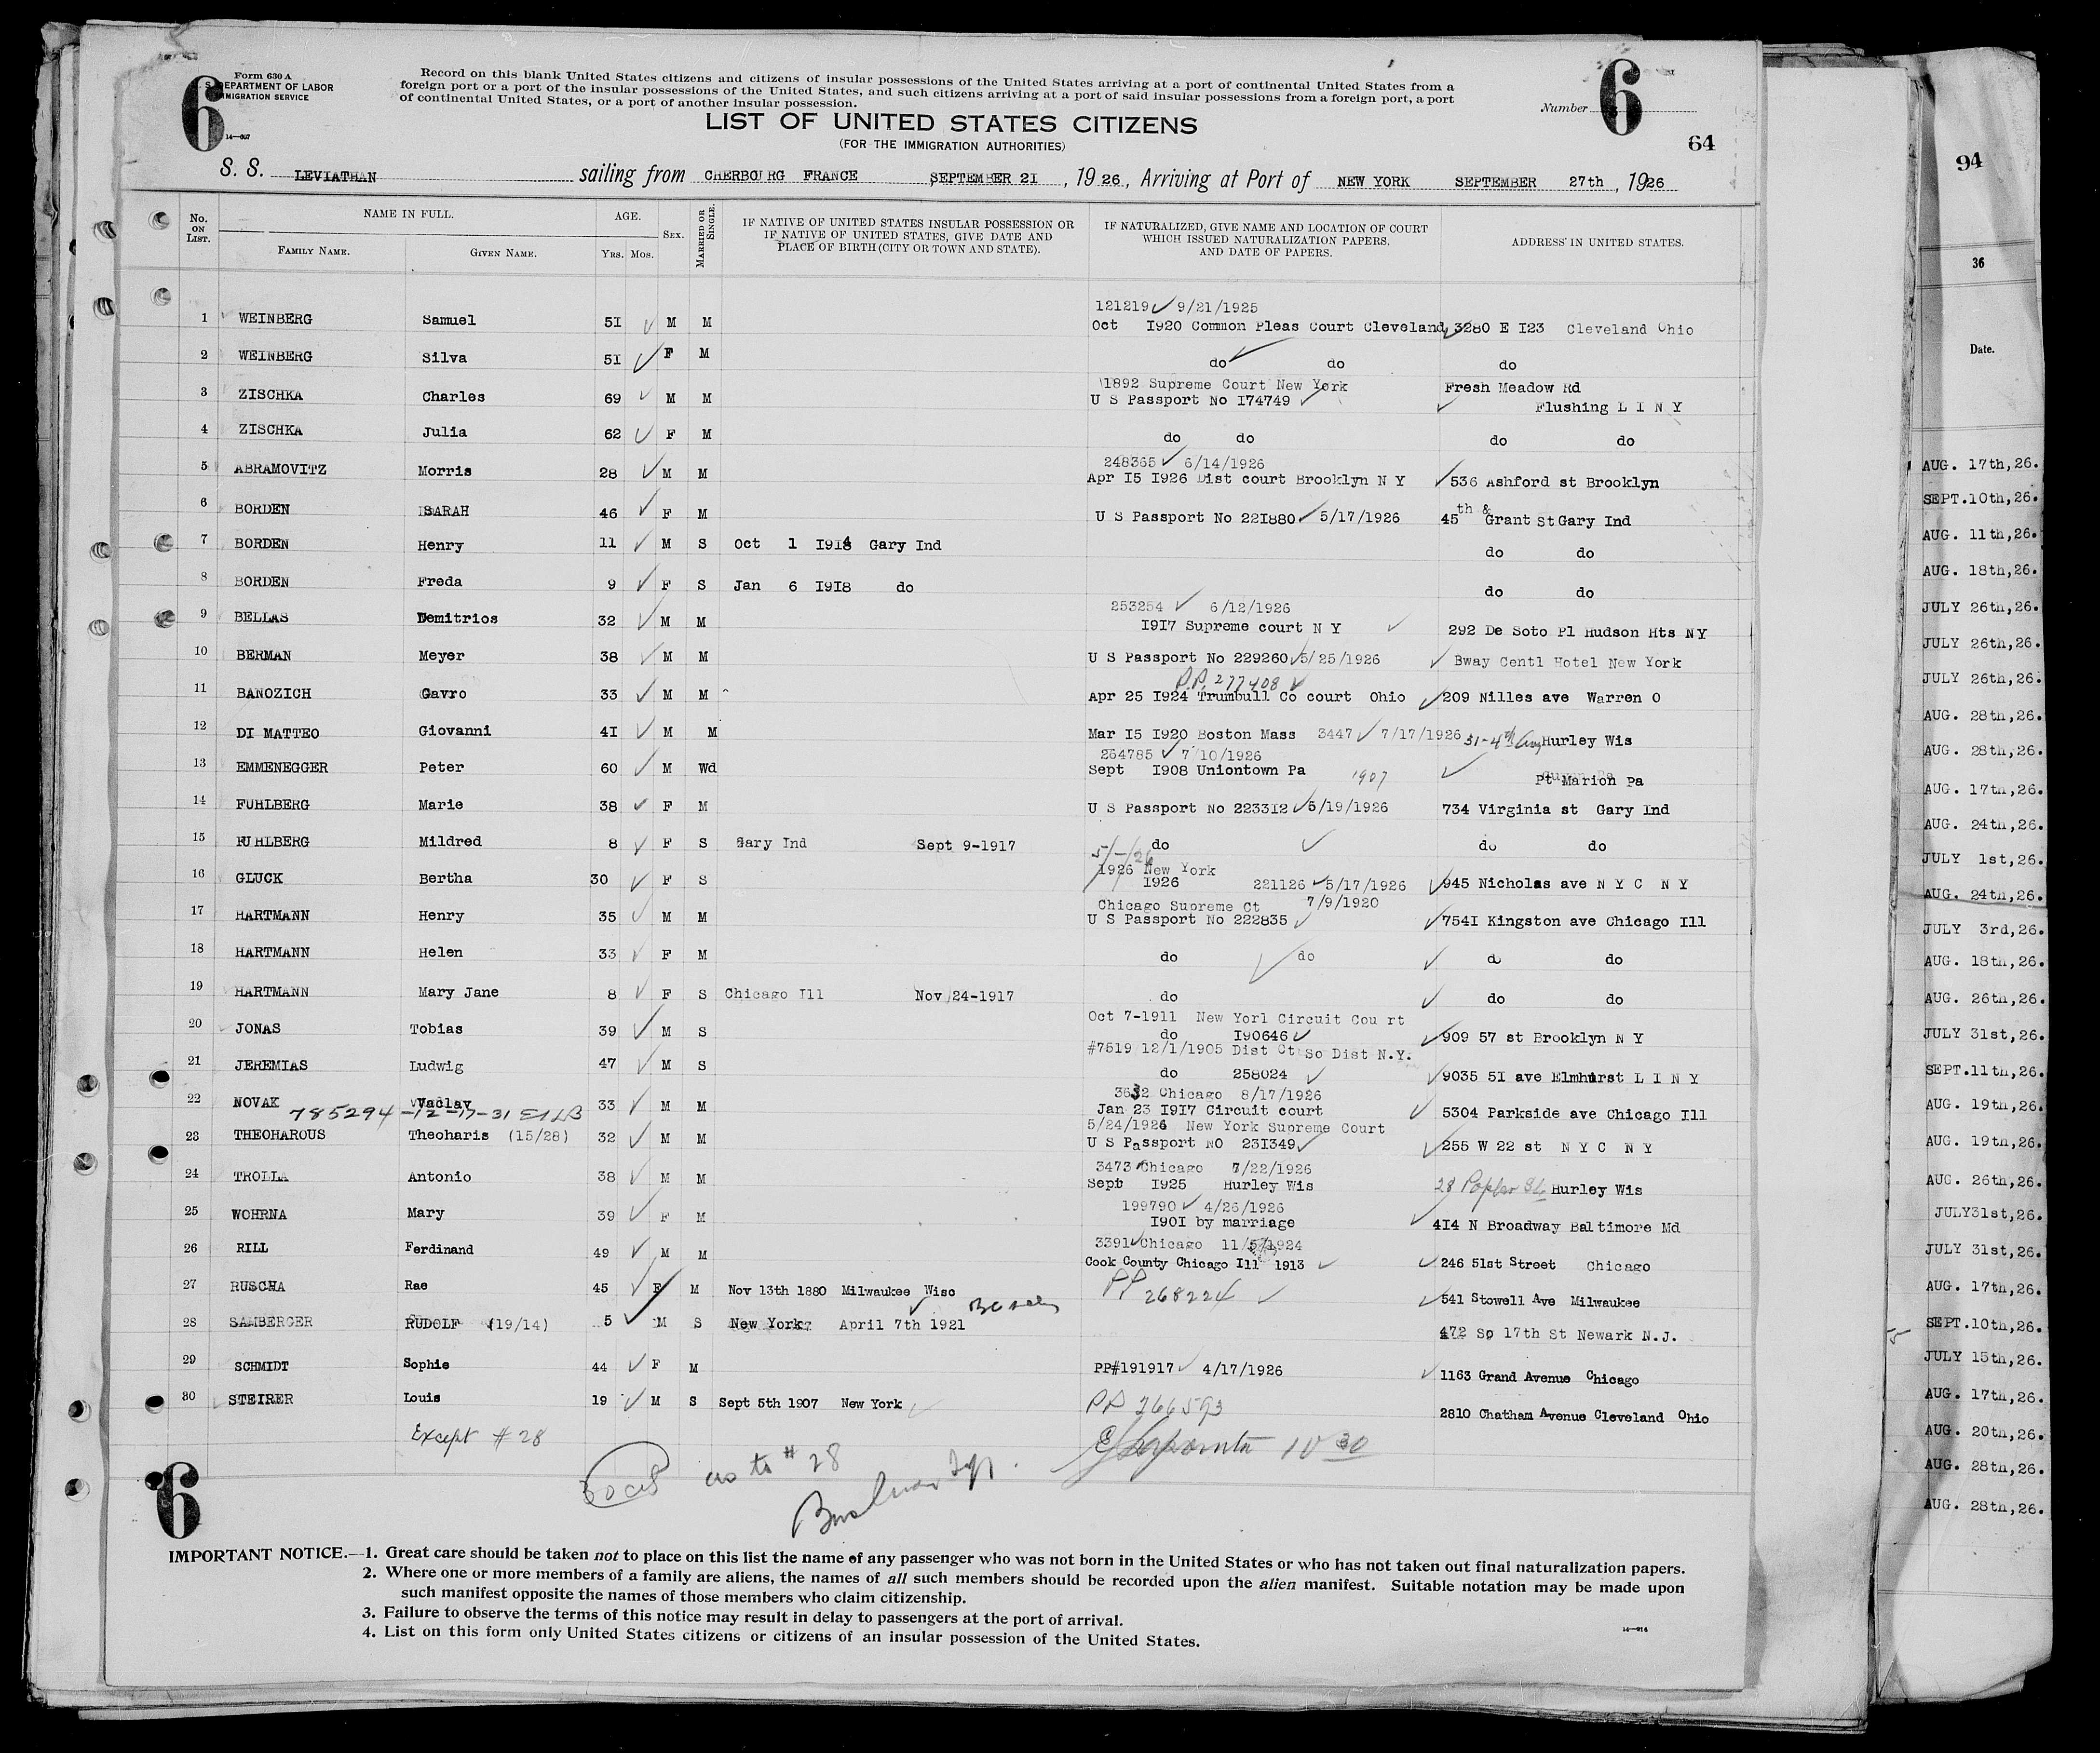 Form 630 A
U. S. DEPARTMENT OF LABOR
IMMIGRATION SERVICE
14—607
6
Record on this blank United States citizens and citizens of insular possessions of the United States arriving at a port of continental United States from a
foreign port or a port of the insular possessions of the United States, and such citizens arriving at a port of said insular possessions from a foreign port, a port
of continental United States, or a port of another insular possession.
Number 6
64
LIST OF UNITED STATES CITIZENS
(FOR THE IMMIGRATION AUTHORITIES)
S. S. LEVIATHAN sailing from CHERBOURG FRANCE SEPTEMBER 2I , 19 26, Arriving at Port of NEW YORK SEPTEMBER 27th , 1926
No. ON LIST. NAME IN FULL. FAMILY NAME. GIVEN NAME. AGE. YRS. MOS. SEX. MARRIED OR SINGLE. IF NATIVE OF UNITED STATES INSULAR POSSESSION OR IF NATIVE OF UNITED STATES, GIVE DATE AND PLACE OF BIRTH (CITY OR TOWN AND STATE). IF NATURALIZED, GIVE NAME AND LOCATION OF COURT WHICH ISSUED NATURALIZATION PAPERS, AND DATE OF PAPERS. ADDRESS IN UNITED STATES.
121219 ✓ 9/21/1925
1 WEINBERG Samuel 5I M M Oct I920 Common Pleas Court Cleveland 3280 E I23 Cleveland Ohio
2 WEINBERG Silva 5I F M do do do
1892 Supreme Court New York Fresh Meadow Rd
3 ZISCHKA Charles 69 M M U S Passport No I74749 Flushing L I N Y
4 ZISCHKA Julia 62 F M do do do do
248365 ✓ 6/14/1926
5 ABRAMOVITZ Morris 28 M M Apr I5 I926 Dist court Brooklyn N Y 536 Ashford st Brooklyn
6 BORDEN SARAH 46 F M U S Passport No 22I880 5/17/1926 45th & Grant St Gary Ind
7 BORDEN Henry 11 M S Oct 1 I914 Gary Ind do do
8 BORDEN Freda 9 F S Jan 6 I9I8 do do do
253254 ✓ 6/12/1926
9 BELLAS Demitrios 32 M M I9I7 Supreme court N Y 292 De Soto Pl Hudson Hts NY
10 BERMAN Meyer 38 M M U S Passport No 229260 5/25/1926 Bway Centl Hotel New York
P.P. 277408 ✓
11 BANOZICH Gavro 33 M M Apr 25 I924 Trumbull Co court Ohio 209 Nilles ave Warren O
12 DI MATTEO Giovanni 4I M M Mar I5 I920 Boston Mass 3447 ✓ 7/17/1926 Hurley Wis
264785 ✓ 7/10/1926
13 EMMENEGGER Peter 60 M Wd Sept I908 Uniontown Pa 1907 Pt Marion Pa
14 FUHLBERG Marie 38 F M U S Passport No 2233I2 5/19/1926 734 Virginia st Gary Ind
15 FUHLBERG Mildred 8 F S Gary Ind Sept 9-1917 do do do
5/-/26
1926 New York
16 GLUCK Bertha 30 F S 1926 221126 5/17/1926 945 Nicholas ave N Y C N Y
Chicago Supreme Ct 7/9/1920
17 HARTMANN Henry 35 M M U S Passport No 222835 754I Kingston ave Chicago Ill
18 HARTMANN Helen 33 F M do do do do
19 HARTMANN Mary Jane 8 F S Chicago Ill Nov 24-1917 do do do
Oct 7-1911 New Yorl Circuit Cou rt
20 JONAS Tobias 39 M S do I90646 909 57 st Brooklyn N Y
#7519 12/1/1905 Dist Ct So Dist N.Y.
21 JEREMIAS Ludwig 47 M S do 258024 9035 5I ave Elmhurst L I N Y
3632 Chicago 8/17/1926
22 NOVAK Vaclav 33 M M Jan 23 I9I7 Circuit court 5304 Parkside ave Chicago Ill
785294 -12-17-31
5/24/1926 New York Supreme Court
23 THEOHAROUS Theoharis (15/28) 32 M M U S Passport NO 23I349 255 W 22 st N Y C N Y
3473 Chicago 7/22/1926
24 TROLLA Antonio 38 M M Sept I925 Hurley Wis 28 Hurley Wis
199790 ✓ 4/26/1926
25 WOHRNA Mary 39 F M I90I by marriage 4I4 N Broadway Baltimore Md
3391 Chicago 11/5/1924
26 RILL Ferdinand 49 M M Cook County Chicago Ill 1913 246 51st Street Chicago
27 RUSCHA Rae 45 F M Nov 13th 1880 Milwaukee Wisc PP 268224 541 Stowell Ave Milwaukee
28 SAMBERGER RUDOLF (19/14) 5 M S New York April 7th 1921 472 So 17th St Newark N.J.
29 SCHMIDT Sophie 44 F M PP#191917 4/17/1926 1163 Grand Avenue Chicago
30 STEIRER Louis 19 M S Sept 5th 1907 New York PP 266593 2810 Chatham Avenue Cleveland Ohio
Except # 28
as to # 28
6
IMPORTANT NOTICE.—1. Great care should be taken not to place on this list the name of any passenger who was not born in the United States or who has not taken out final naturalization papers.
2. Where one or more members of a family are aliens, the names of all such members should be recorded upon the alien manifest. Suitable notation may be made upon
such manifest opposite the names of those members who claim citizenship.
3. Failure to observe the terms of this notice may result in delay to passengers at the port of arrival.
4. List on this form only United States citizens or citizens of an insular possession of the United States.
14—914
94
36
Date.
AUG. 17th,26.
SEPT.10th,26.
AUG. 11th,26.
AUG. 18th,26.
JULY 26th,26.
JULY 26th,26.
JULY 26th,26.
AUG. 28th,26.
AUG. 28th,26.
AUG. 17th,26.
AUG. 24th,26.
JULY 1st,26.
AUG. 24th,26.
JULY 3rd,26.
AUG. 18th,26.
AUG. 26th,26.
JULY 31st,26.
SEPT.11th,26.
AUG. 19th,26.
AUG. 19th,26.
AUG. 26th,26.
JULY31st,26.
JULY 31st,26.
AUG. 17th,26.
SEPT.10th,26.
JULY 15th,26.
AUG. 17th,26.
AUG. 20th,26.
AUG. 28th,26.
AUG. 28th,26.